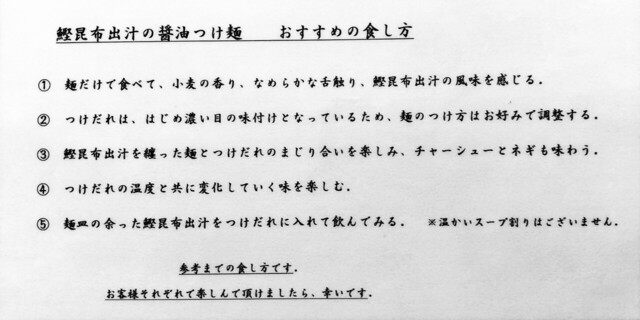 鰹昆布出汁の醤油つけ麺　　おすすめの食し方
① 麺だけで食べて、小麦の香り、なめらかな舌触り、鰹昆布出汁の風味を感じる．
② つけだれは、はじめ濃い目の味付けとなっているため、麺のつけ方はお好みで調整する．
③ 鰹昆布出汁を纏った麺とつけだれのまじり合いを楽しみ、チャーシューとネギも味わう．
④ つけだれの温度と共に変化していく味を楽しむ．
⑤ 麺皿の余った鰹昆布出汁をつけだれに入れて飲んでみる．　※温かいスープ割りはございません．
参考までの食し方です．
お客様それぞれで楽しんで頂けましたら、幸いです．